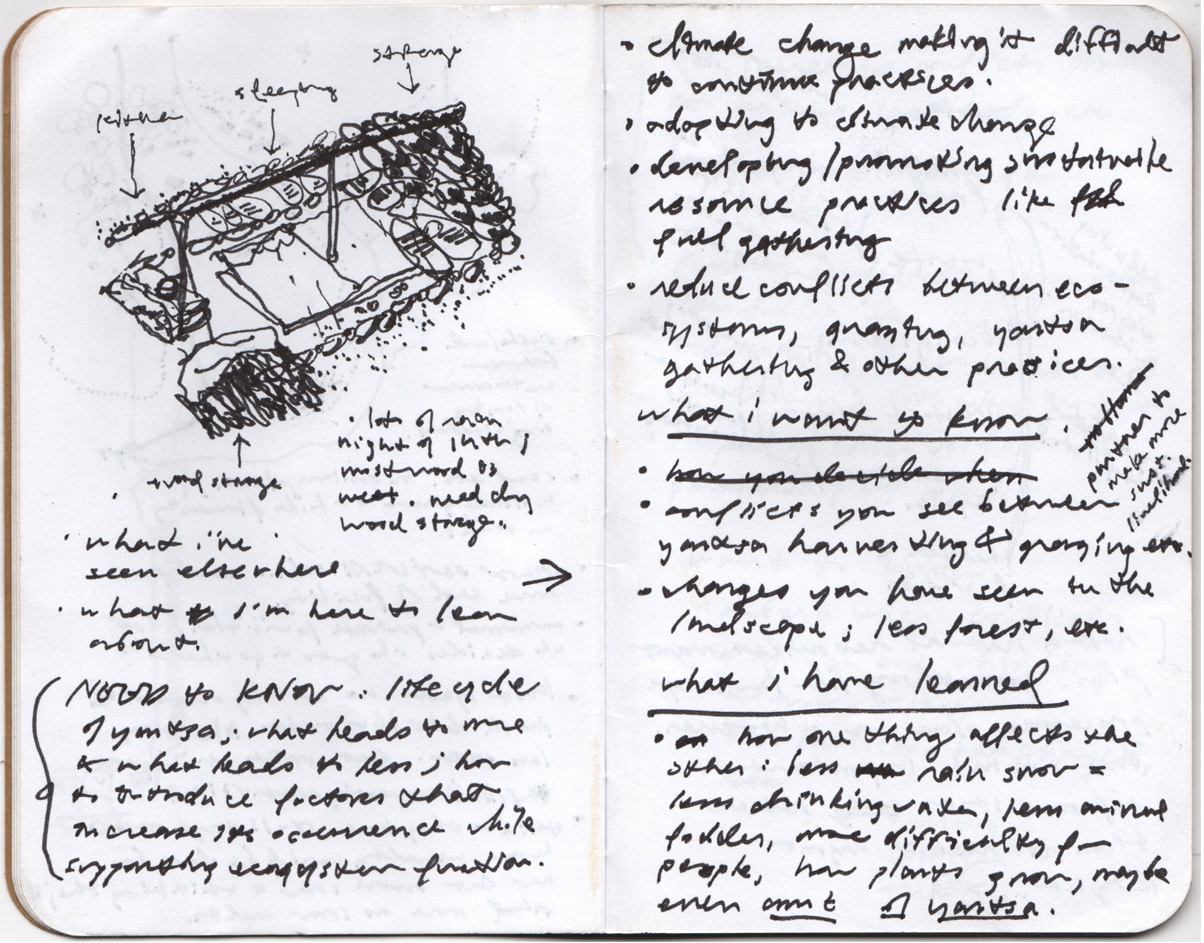 storage
sleeping
kitchen
wood storage
• lots of rain
night of 14th;
most wood is
wet. need dry
wood storage.
• what i've
seen elsewhere
• what i'm here to learn
about.
NEED to KNOW: lifecycle
of yartsa; what leads to more
& what leads to less; how
to introduce factors that
increase its occurrence while
supporting ecosystem function.
• climate change making it difficult
to continue practices.
• adapting to climate change
• developing/promoting sustainable
resource practices like
fuel gathering
• reduce conflicts between eco-
systems, grazing, yartsa
gathering & other practices.
what i want to know
• how you decide when
• conflicts you see between
yartsa harvesting & grazing etc.
partner to
make more
sust.
livelihood.
• changes you have seen in the
landscape; less forest, etc.
what i have learned
• how one thing affects the
other: less rain snow =
less drinking water, less animal
fodder, more difficulty for
people, how plants grow, maybe
even amt of yartsa.